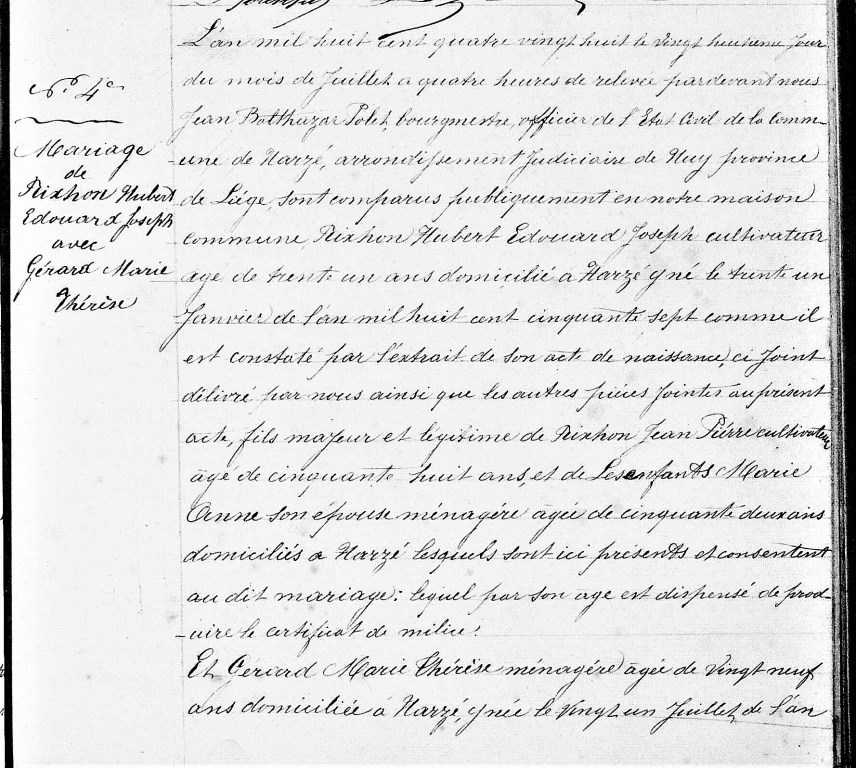 N.° 4e
Mariage
de
Rixhon Hubert
Edouard Joseph
avec
Gérard Marie
Thérèse
L'an mil huit cent quatre vingt huit le vingt huitième jour
du mois de Juillet a quatre heures de relevée pardevant nous
Jean Balthazar Polet, bourgmestre, officier de l'Etat Civil de la Comm-
-une de Harzé, arrondissement Judiciaire de Huy province
de Liége, sont comparus publiquement en notre maison
commune, Rixhon Hubert Edouard Joseph cultivateur
agé de trente un ans domicilié à Harzé y né le trente un
Janvier de l'an mil huit cent cinquante sept comme il
est constaté par l'extrait de son acte de naissance, ci Joint
délivré par nous ainsi que les autres pièces Jointes au présent
acte, fils majeur et légitime de Rixhon Jean Piérre cultivateur
âgé de cinquante huit ans, et de Lesenfants Marie
Anne son épouse ménagère agée de cinquante deux ans
domiciliés a Harzé lesquels sont ici présents et consentent
au dit mariage: lequel par son age est dispensé de prod-
-uire le certificat de milice.
Et Gérard Marie Thérèse ménagère agée de vingt neuf
ans domiciliée à Harzé, y née le vingt un Juillet de l'an